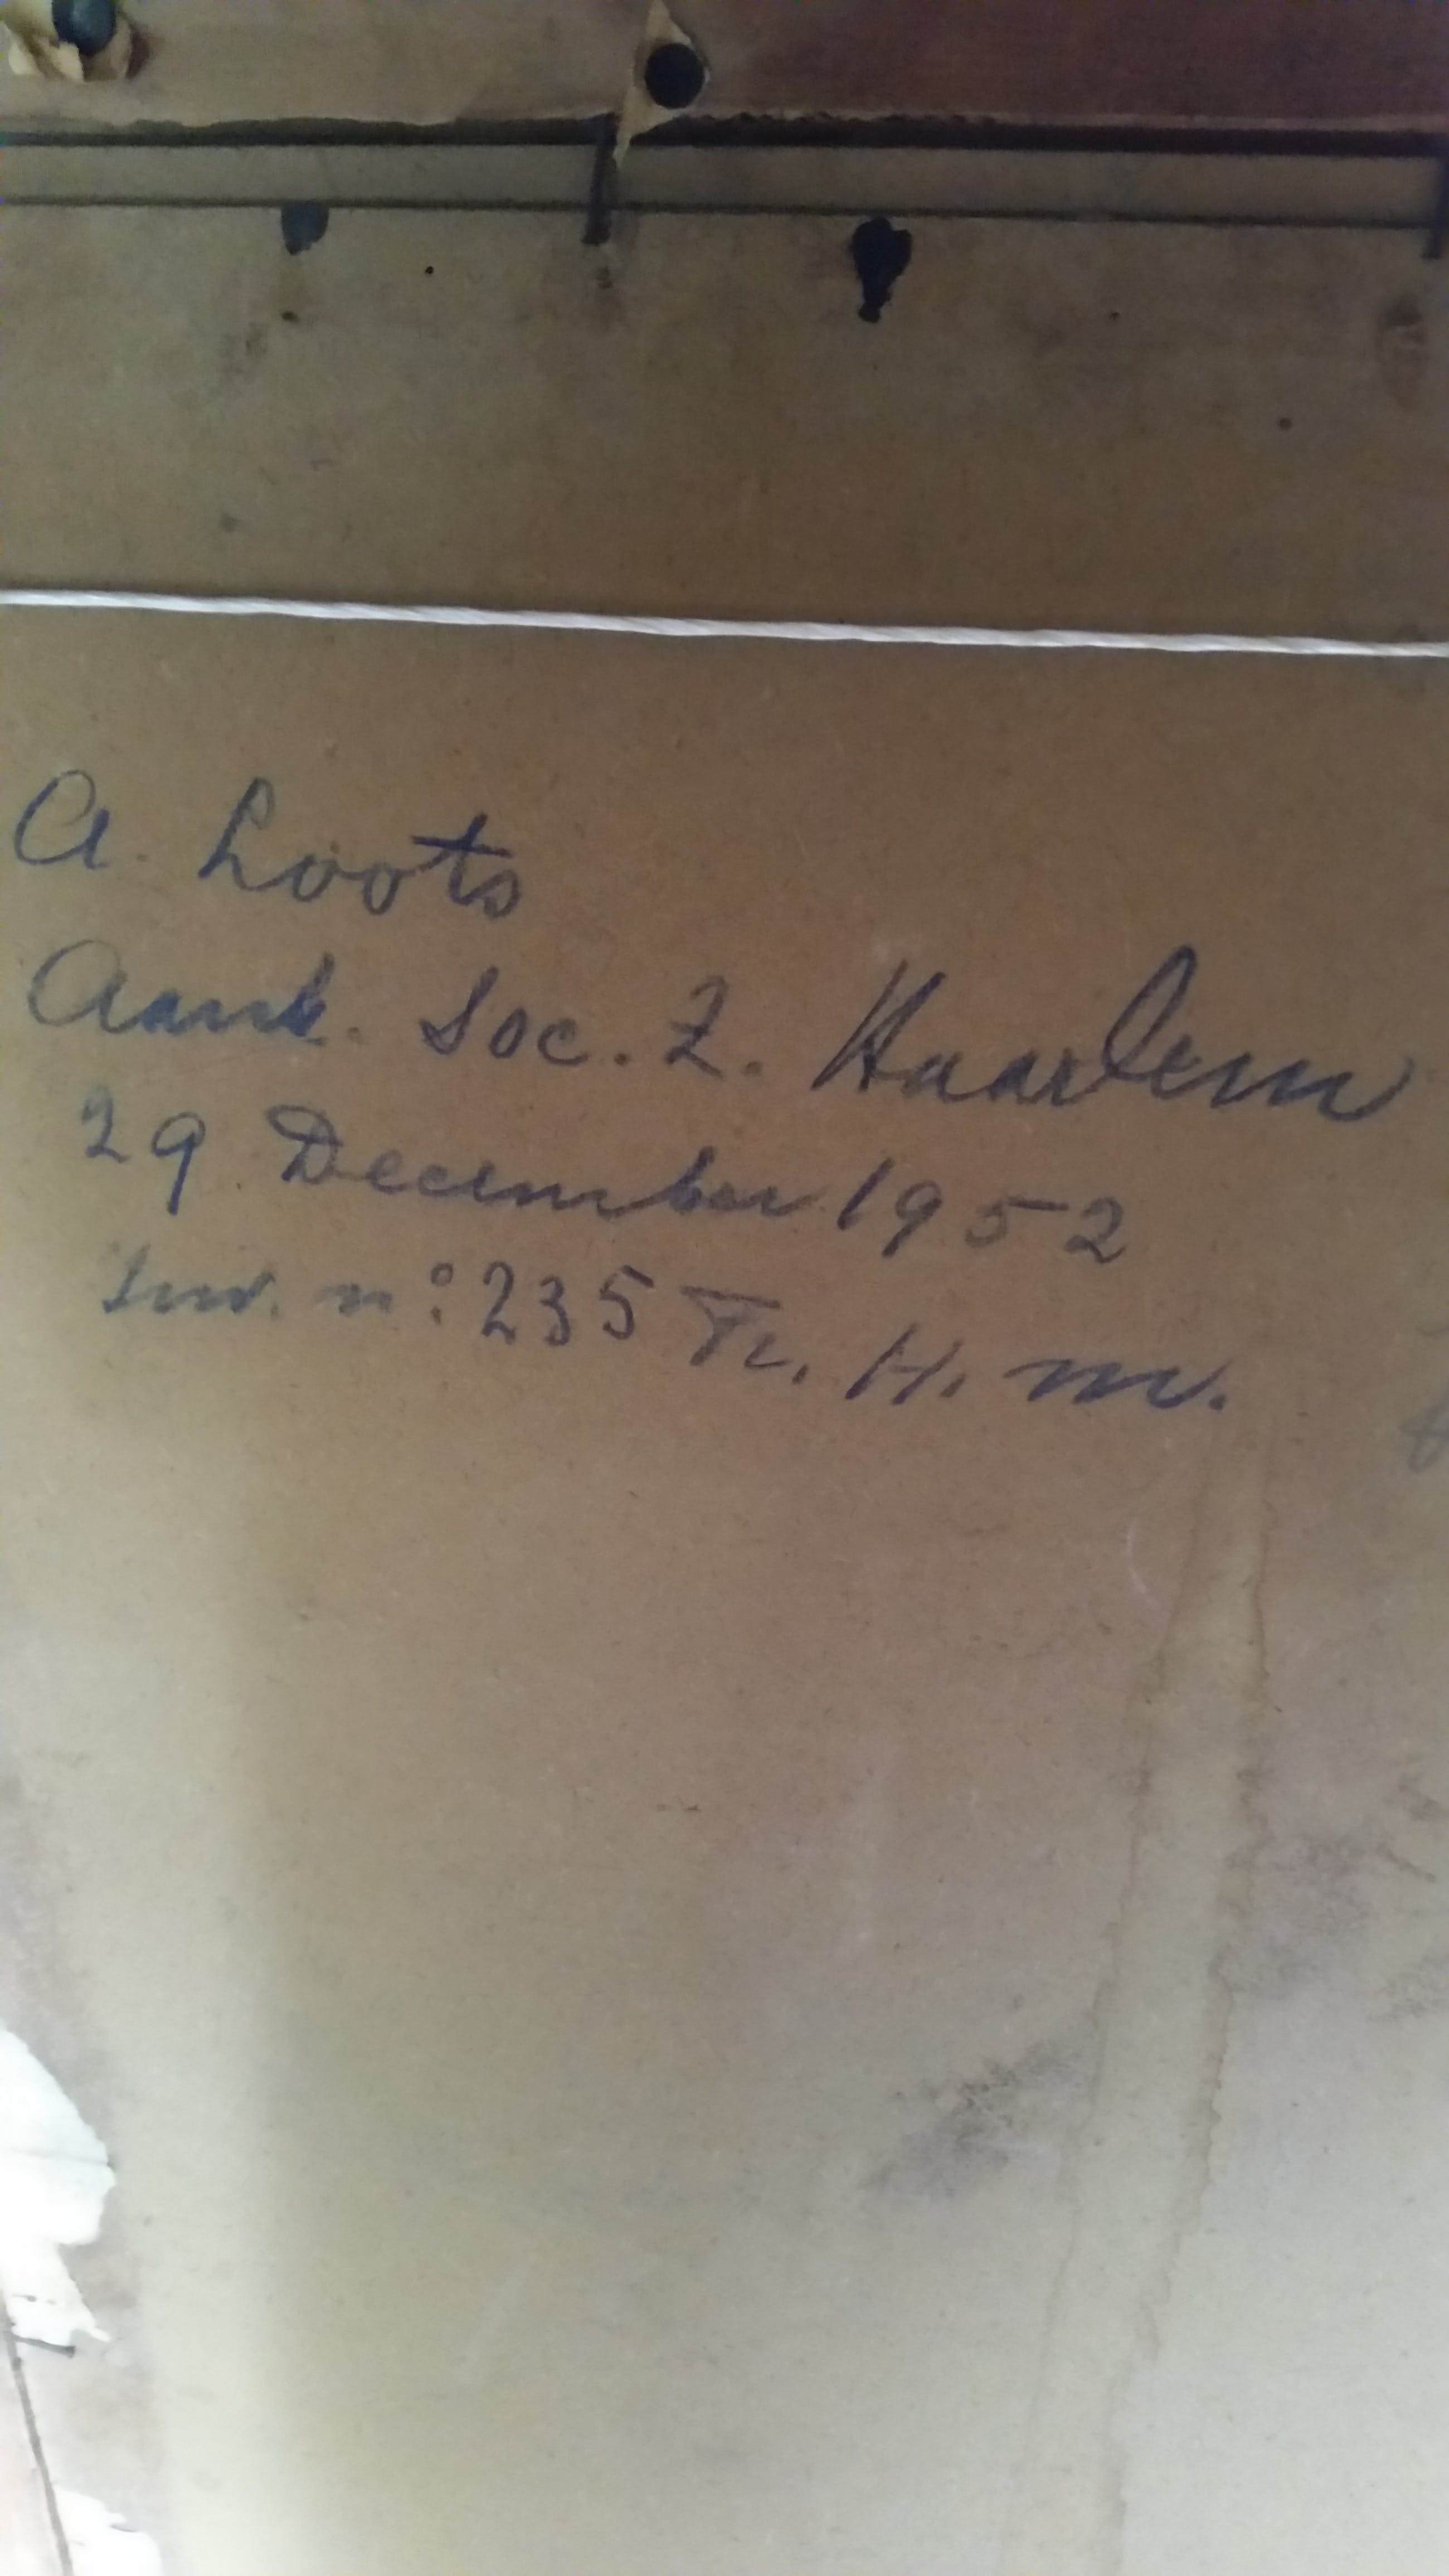 A. Loots
Aank. Soc. Z. Haarlem
29 December 1952
Inv. n: 235 Fr. H. M.